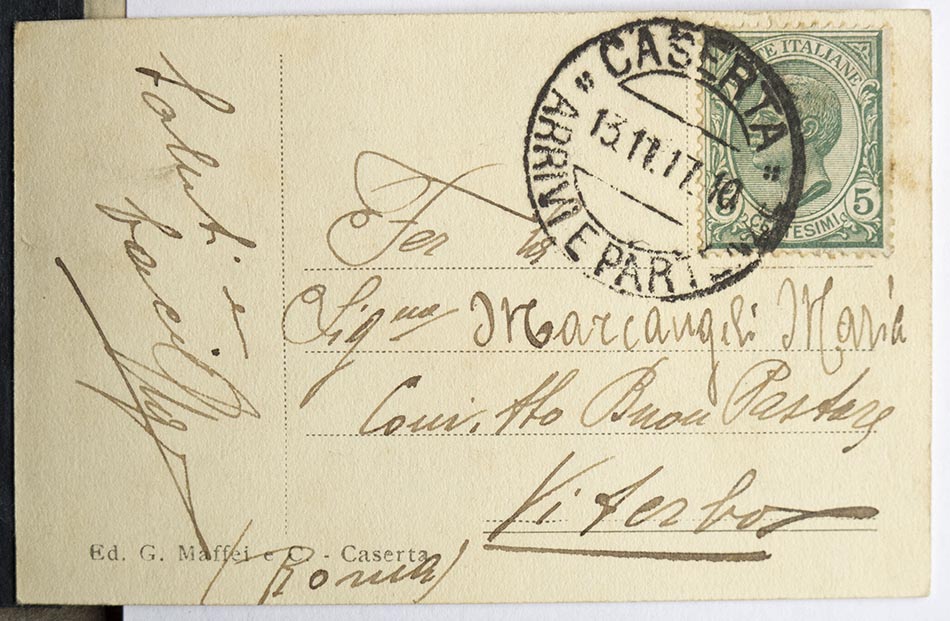 Saluti e
baci
CASERTA
13.11.17.10
ARRIVI E PART
POSTE ITALIANE
5 5
CENTESIMI
Sig.na Marcangeli Maria
Convitto Buon Pastore
Viterbo
(Roma)
Ed. G. Maffei e C. - Caserta